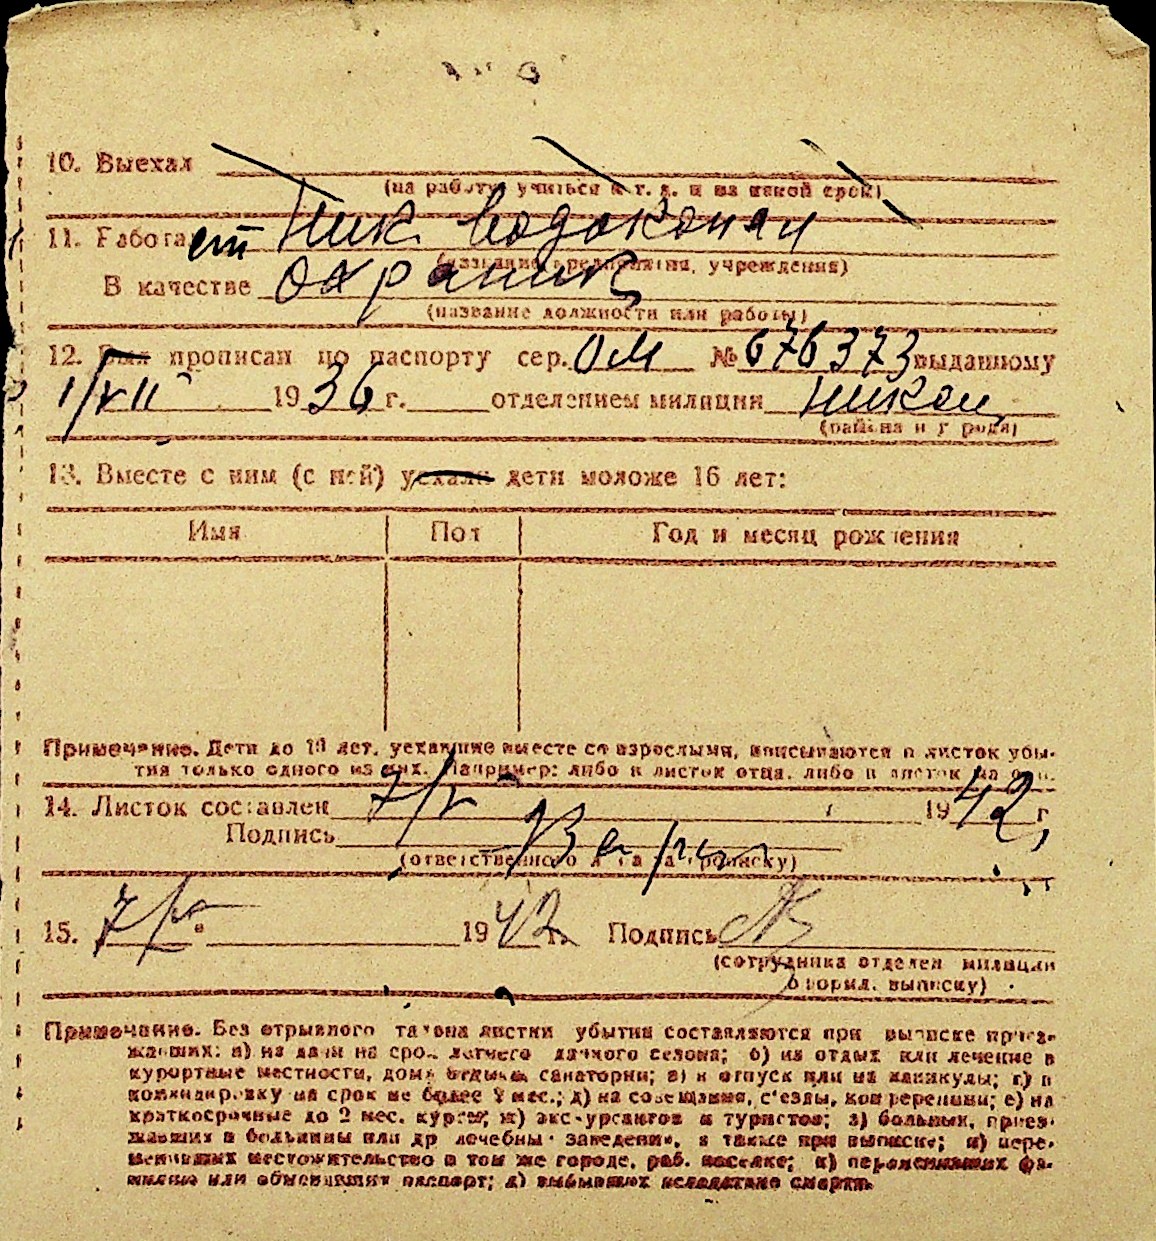 10. Выехал
(на работу, учиться и т. д. и на какой срок)
11. Работает Ник. Водоканал
(название предприятия, учреждения)
В качестве охраник
(название должности или работы)
12. Был прописан по паспорту сер. ОМ № 676373 выданному
1/VII 1936 г. отделением милиции Никол
(района и города)
13. Вместе с ним (с ней) уехали дети моложе 16 лет:
Имя Пол Год и месяц рождения
Примечание. Дети до 16 лет, уехавшие вместе со взрослыми, вписываются в листок убы-
тия только одного из них. Например: либо в листок отца, либо в листок матери.
14. Листок составлен 7/V 1942 г
Подпись
(ответственного за прописку)
15. 7/V 1942 г. Подпись
(сотрудника отделен милиции
оформл. выписку)
Примечание. Без отрывного талона листки убытия составляются при выписке приез-
жавших: а) на дачи на срок летнего дачного сезона; б) на отдых или лечение в
курортные местности, дома отдыха, санатории; в) в отпуск или на каникулы; г) в
командировку на срок не более 2 мес.; д) на совещания, с'езды, конференции; е) на
краткосрочные до 2 мес. курсы; ж) экскурсантов и туристов; з) больных, приез-
жавших в больницы или др лечебны заведения, а также при выписке; и) пере-
менивших местожительство в том же городе, раб. поселке; к) переменивших фа-
милию или обменивших паспорт; л) выбывших вследствие смерти.